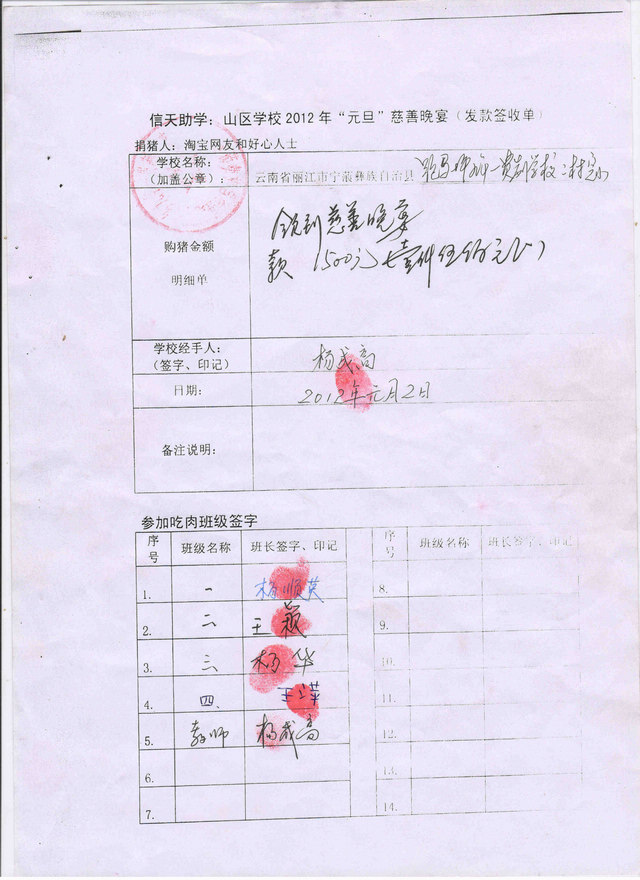 信天助学：山区学校2012年“元旦”慈善晚宴（发款签收单）
捐猪人：淘宝网友和好心人士
学校名称：
（加盖公章）：
云南省丽江市宁蒗彝族自治县
购猪金额
明细单
领到慈善晚宴
款 1500元
学校经手人：
（签字、印记）
杨成高
日期：
2012年元月2日
备注说明：
参加吃肉班级签字
序号 班级名称 班长签字、印记 序号 班级名称 班长签字、印记
1. 一 杨顺英 8.
2. 二 王颖 9.
3. 三 杨华 10.
4. 四 11.
5. 教师 杨成高 12.
6. 13.
7. 14.